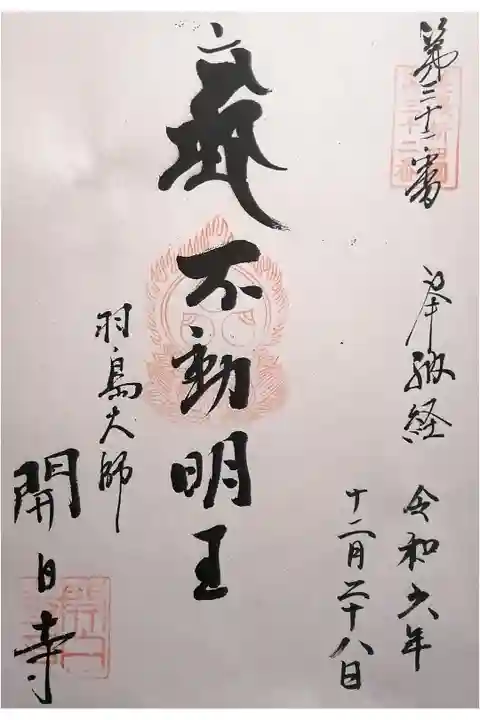 第三十二番
奉納経
令和六年
十二月二十八日
不動明王
羽島大師
開白寺